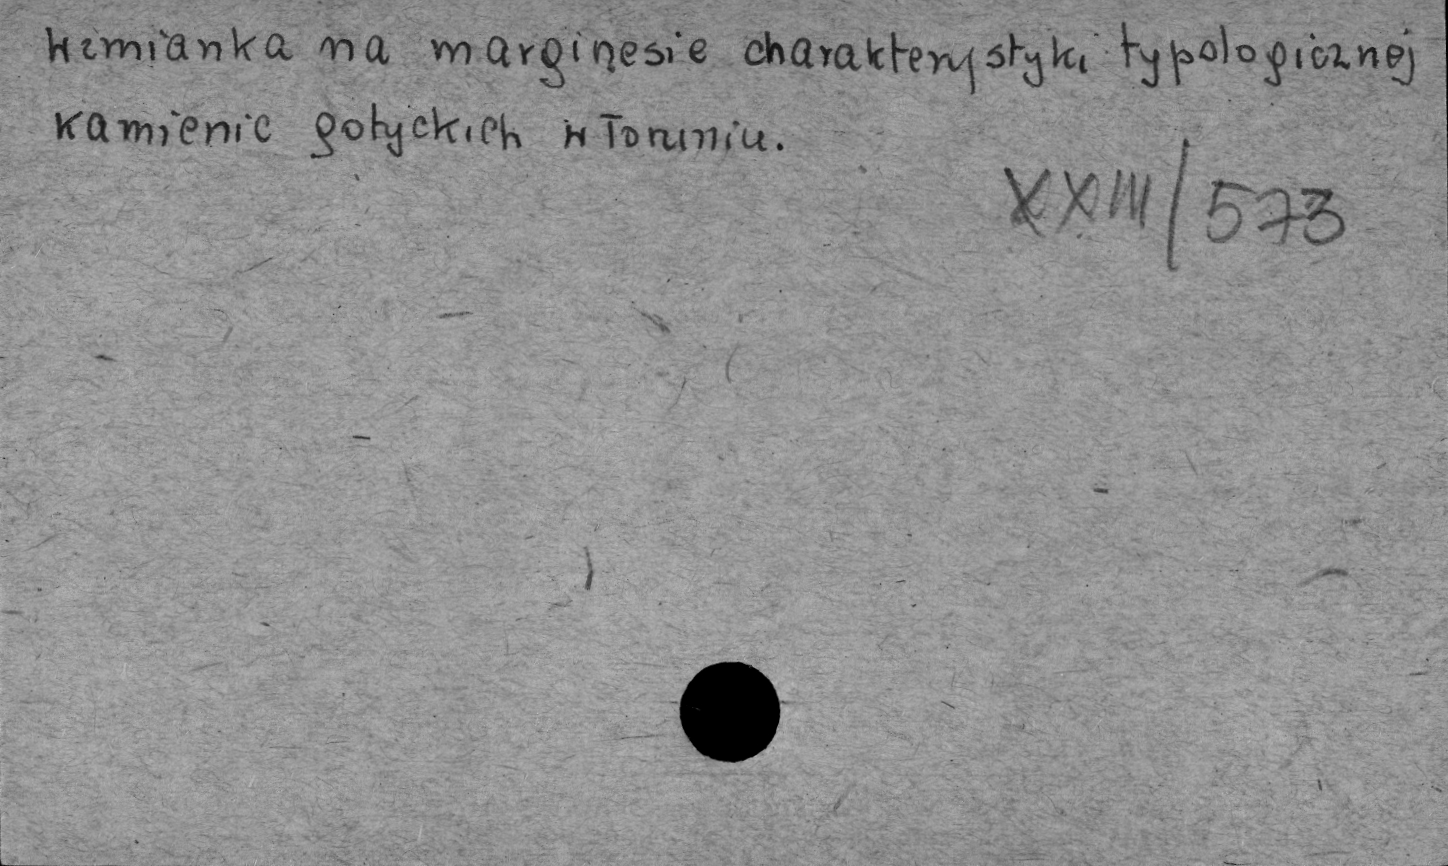 wzmianka na marginesie charakterystyki typologicznej
kamienic gotyckich w Toruniu.
XXIII/573